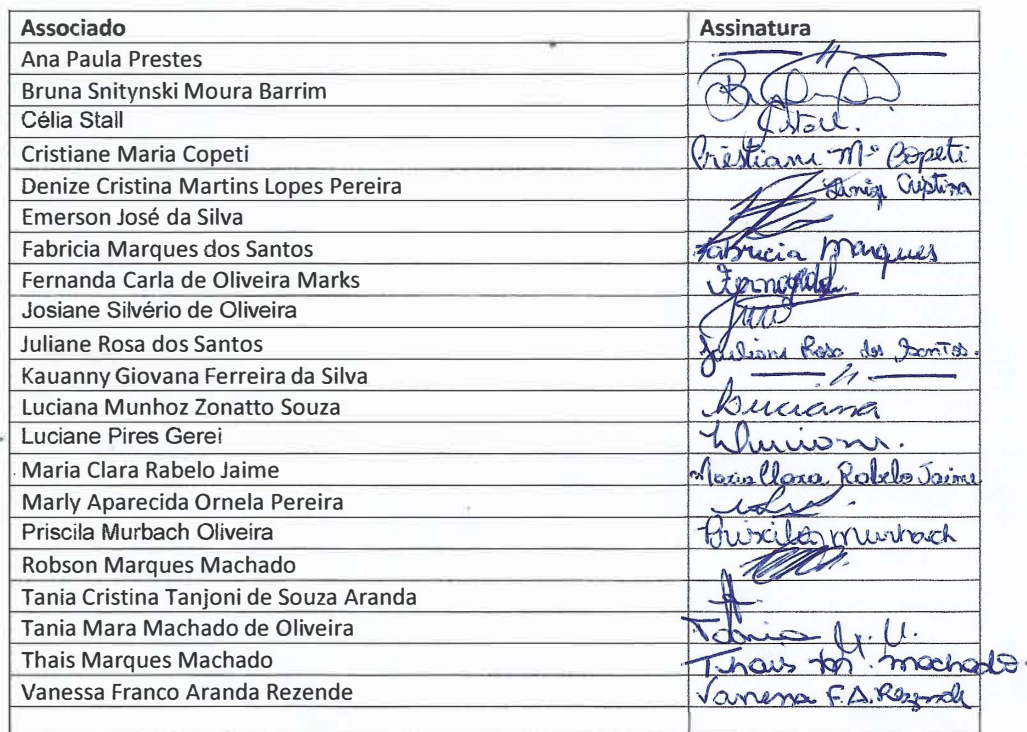 Associado Assinatura
Ana Paula Prestes
Bruna Snitynski Moura Barrim
Célia Stall Cstall.
Cristiane Maria Copeti Cristiani Mª Copeti
Denize Cristina Martins Lopes Pereira Denize Cristina
Emerson José da Silva
Fabricia Marques dos Santos Fabricia Marques
Fernanda Carla de Oliveira Marks Fernanda
Josiane Silvério de Oliveira
Juliane Rosa dos Santos Juliane Rosa dos Santos.
Kauanny Giovana Ferreira da Silva
Luciana Munhoz Zonatto Souza Luciana
Luciane Pires Gerei
Maria Clara Rabelo Jaime Maria Clara Rabelo Jaime
Marly Aparecida Ornela Pereira
Priscila Murbach Oliveira Priscila Murbach
Robson Marques Machado
Tania Cristina Tanjoni de Souza Aranda
Tania Mara Machado de Oliveira Tania
Thais Marques Machado Thais M. Machado.
Vanessa Franco Aranda Rezende Vanessa F.A. Rezende